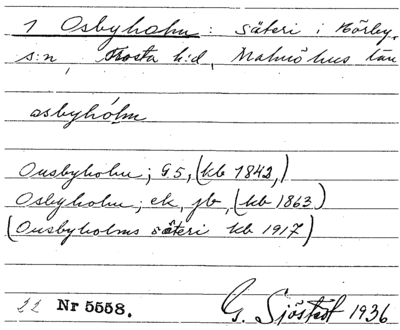 1 Osbyholm: säteri i Hörby,
s:n, Frosta h:d, Malmöhus län
osbyhólm
Ousbyholm; G5, (kb 1842,)
Osbyholm; ek, jb, (kb 1863)
(Ousbyholms säteri kb 1917)
22 Nr 5558. G. Sjöstedt 1936